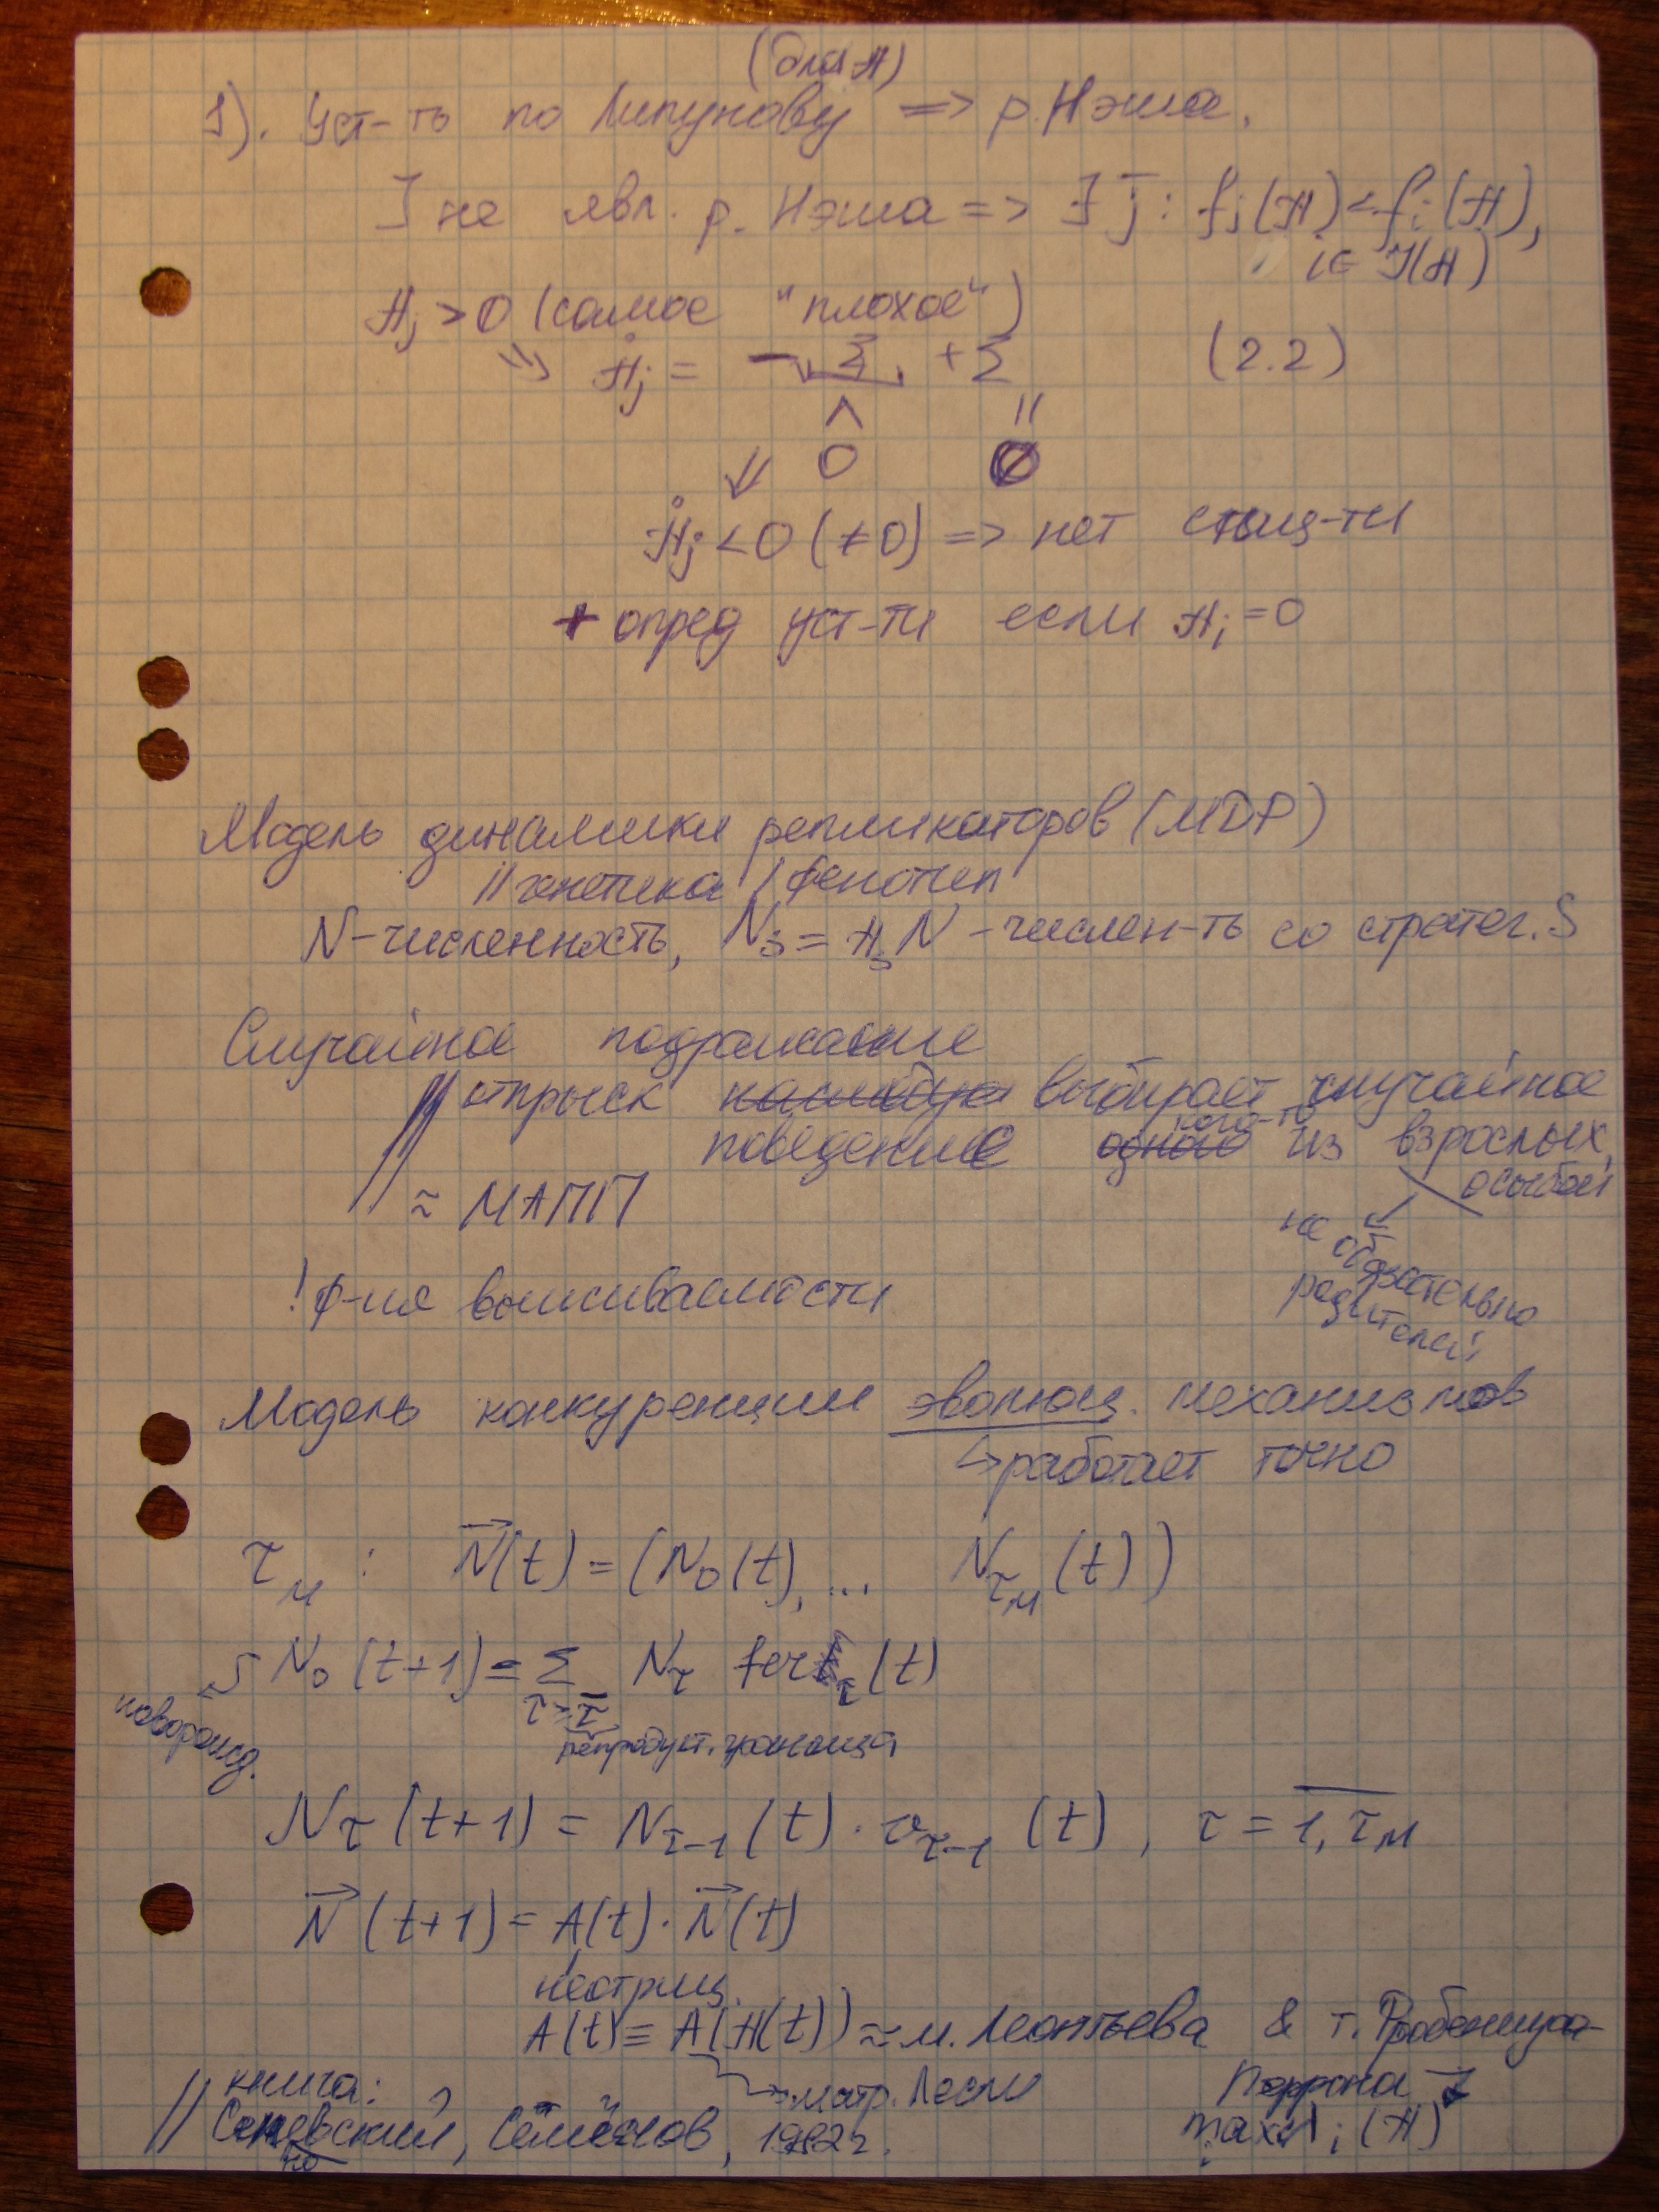 (для π)
1). Уст-ть по Ляпунову => р. Нэша.
] не явл. р. Нэша => ∃ j : fj(π) < fi(π),
i ∈ J(π)
πj > 0 (самое "плохое")
=> π̇j = - Σ + Σ (2.2)
∧ ||
0 0
⇓
π̇j < 0 (≠0) => нет стац-ти
+ опред уст-ти если πj = 0
Модель динамики репликаторов (МДР)
// генетика / фенотип
N - численность, Ns = πs N - числен-ть со стратег. S
Случайное подражание
// отпрыск выбирает случайное
поведение кого-то из взрослых
особей
не обязательно
родителей
// ≈ МАПП
! ф-ия выживаемости
Модель конкуренции эволюц. механизмов
↳ работает точно
τм : N⃗(t) = (N₀(t), ... Nτм(t))
N₀(t+1) = Σ Nτ fertτ(t)
τ ≥ τ̄
новорожд.
репродукт. граница
Nτ(t+1) = Nτ-1(t) · vτ-1(t), τ = 1, τм
N⃗(t+1) = A(t) · N⃗(t)
неотриц.
A(t) ≡ A(π(t)) ≈ м. Леонтьева & т. Фробениуса-
Перрона
→ матр. Лесли
max λi(π)
// книга:
Семёнов, 1982г.